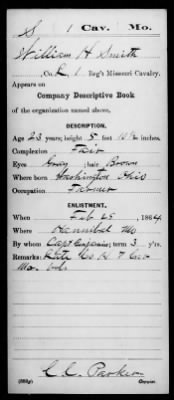 S 1 Cav. Mo.
William H Smith
, Co. , 1 Reg't Missouri Cavalry.
Appears on
Company Descriptive Book
of the organization named above.
DESCRIPTION.
Age 23 years; height 5 feet 10½ inches.
Complexion Fair
Eyes Gray ; hair Brown
Where born Washington Ohio
Occupation Farmer
ENLISTMENT.
When Feb 25 , 1864.
Where Hannibal Mo
By whom Capt ; term 3 y'rs.
Remarks: Co H
Mo. Vols
C. C. Parker
Copyist.